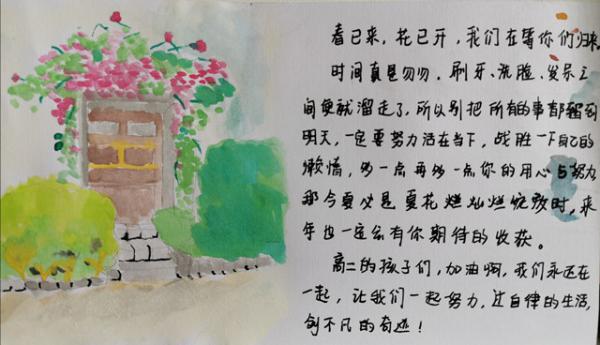 春已来，花已开，我们在等你们归来。
时间真是匆匆，刷牙、洗脸、发呆之
间便就溜走了，所以别把所有的事都留到
明天，一定要努力活在当下，战胜一下自己的
懒惰，多一点再多一点你的用心与努力
那今夏必是夏花烂灿烂绽放时，来
年也一定会有你期待的收获。
高二的孩子们，加油啊，我们永远在
一起，让我们一起努力，过自律的生活，
创不凡的奇迹！